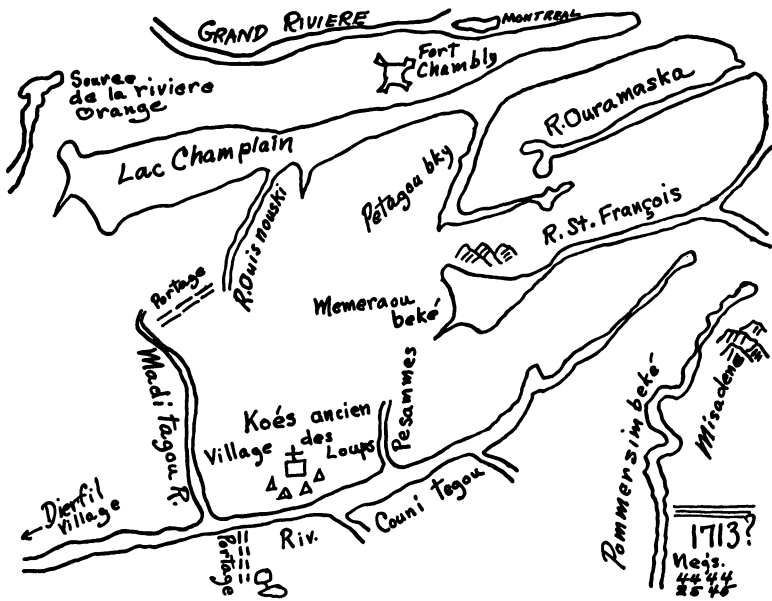 GRAND RIVIERE
MONTREAL
Fort
Chambly
Source
de la riviere
Orange
R. Ouramaska
Lac Champlain
Pétagoubky
R. St. François
R. Ouisnouski
Portage
Memeraou
beké
Maditagou R.
Pesammes
Koés ancien
Village des Loups
Misadene
Pommersimbeké
Dierfil
Village
Riv. Counitegou
Portage
1713?
Negs.
44 44
25 46